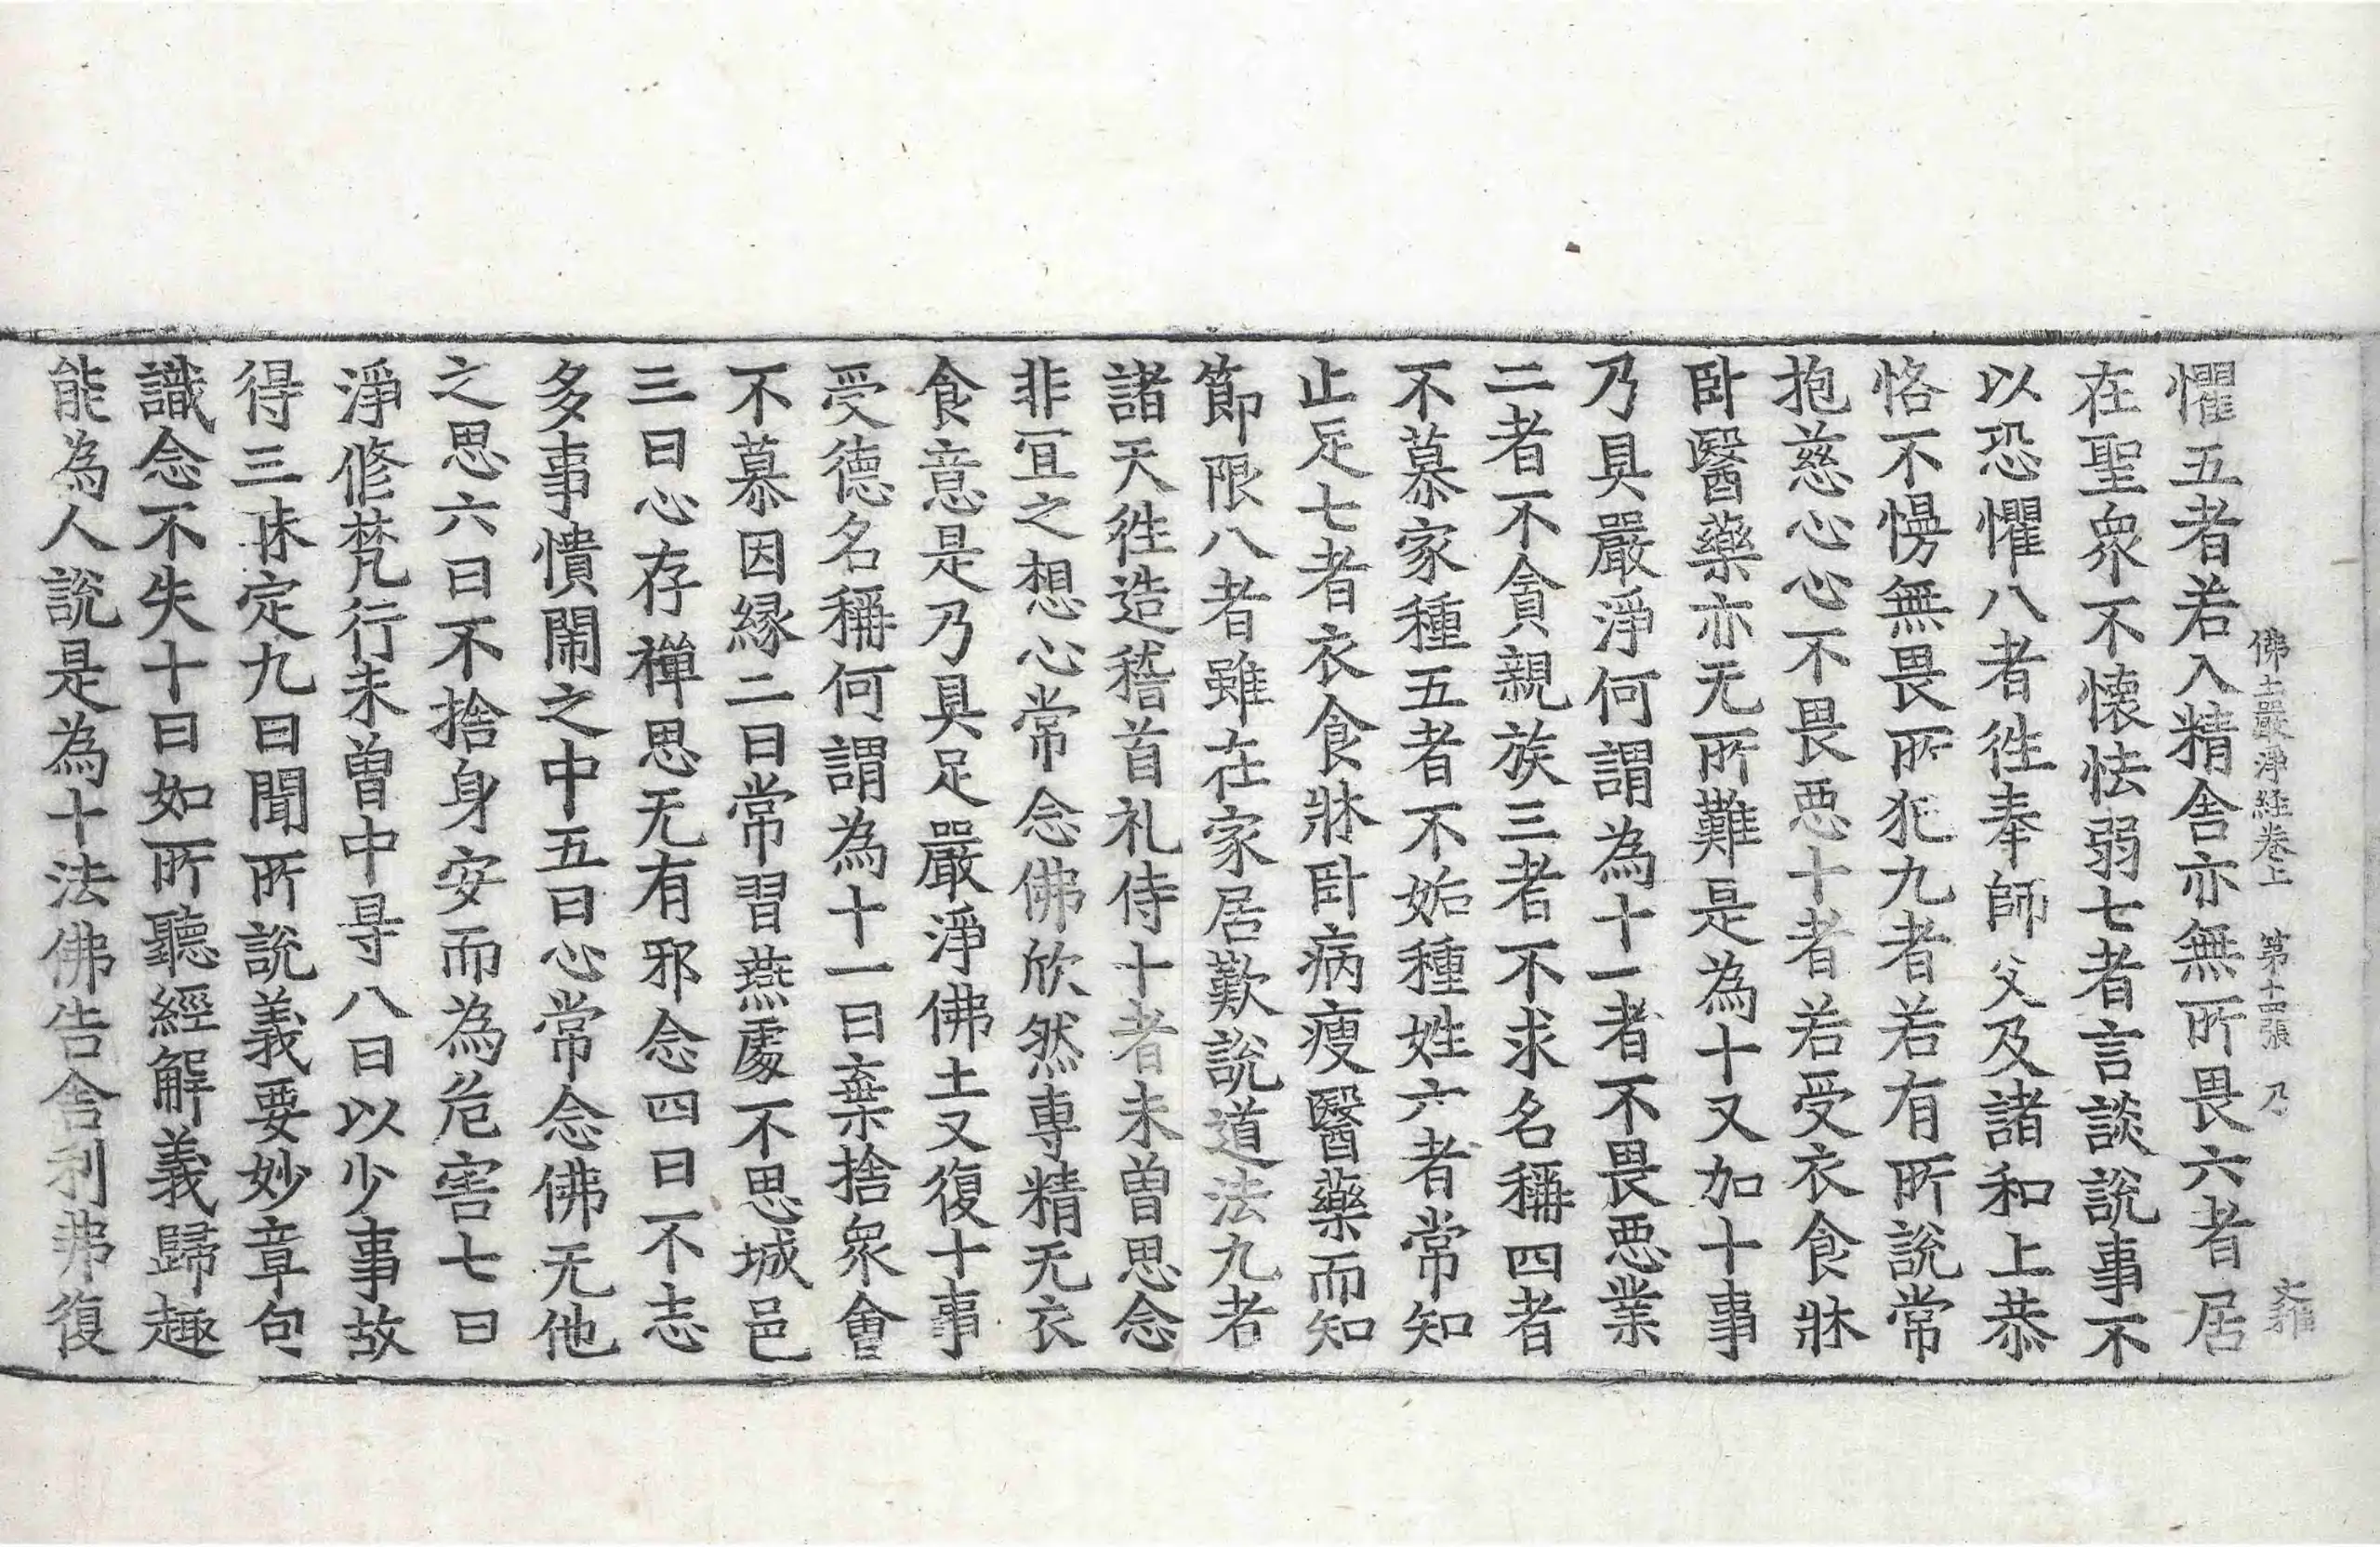 佛土嚴淨経卷上 第十四張 乃
懼五者若入精舎亦無所畏六者居
在聖衆不懐怯弱七者言談說事不
以恐懼八者徃奉師父及諸和上恭
恪不慢無畏所犯九者若有所說常
抱慈心心不畏悪十者若受衣食牀
卧醫藥亦无所難是為十又加十事
乃具嚴淨何謂為十一者不畏悪業
二者不貪親族三者不求名稱四者
不慕家種五者不姤種姓六者常知
止足七者衣食牀卧病瘦醫藥而知
節限八者雖在家居歎說道法九者
諸天徃造稽首礼侍十者未曽思念
非冝之想心常念佛欣然專精无衣
食意是乃具足嚴淨佛土又復十事
受德名稱何謂為十一曰棄捨衆會
不慕因縁二曰常習燕處不思城邑
三曰心存禪思无有邪念四曰不志
多事憒閙之中五曰心常念佛无他
之思六曰不捨身安而為危害七曰
淨修梵行未曽中㝵八曰以少事故
得三昧定九曰聞所說義要妙章句
識念不失十曰如所聽經解義歸趣
能為人說是為十法佛告舎利弗復